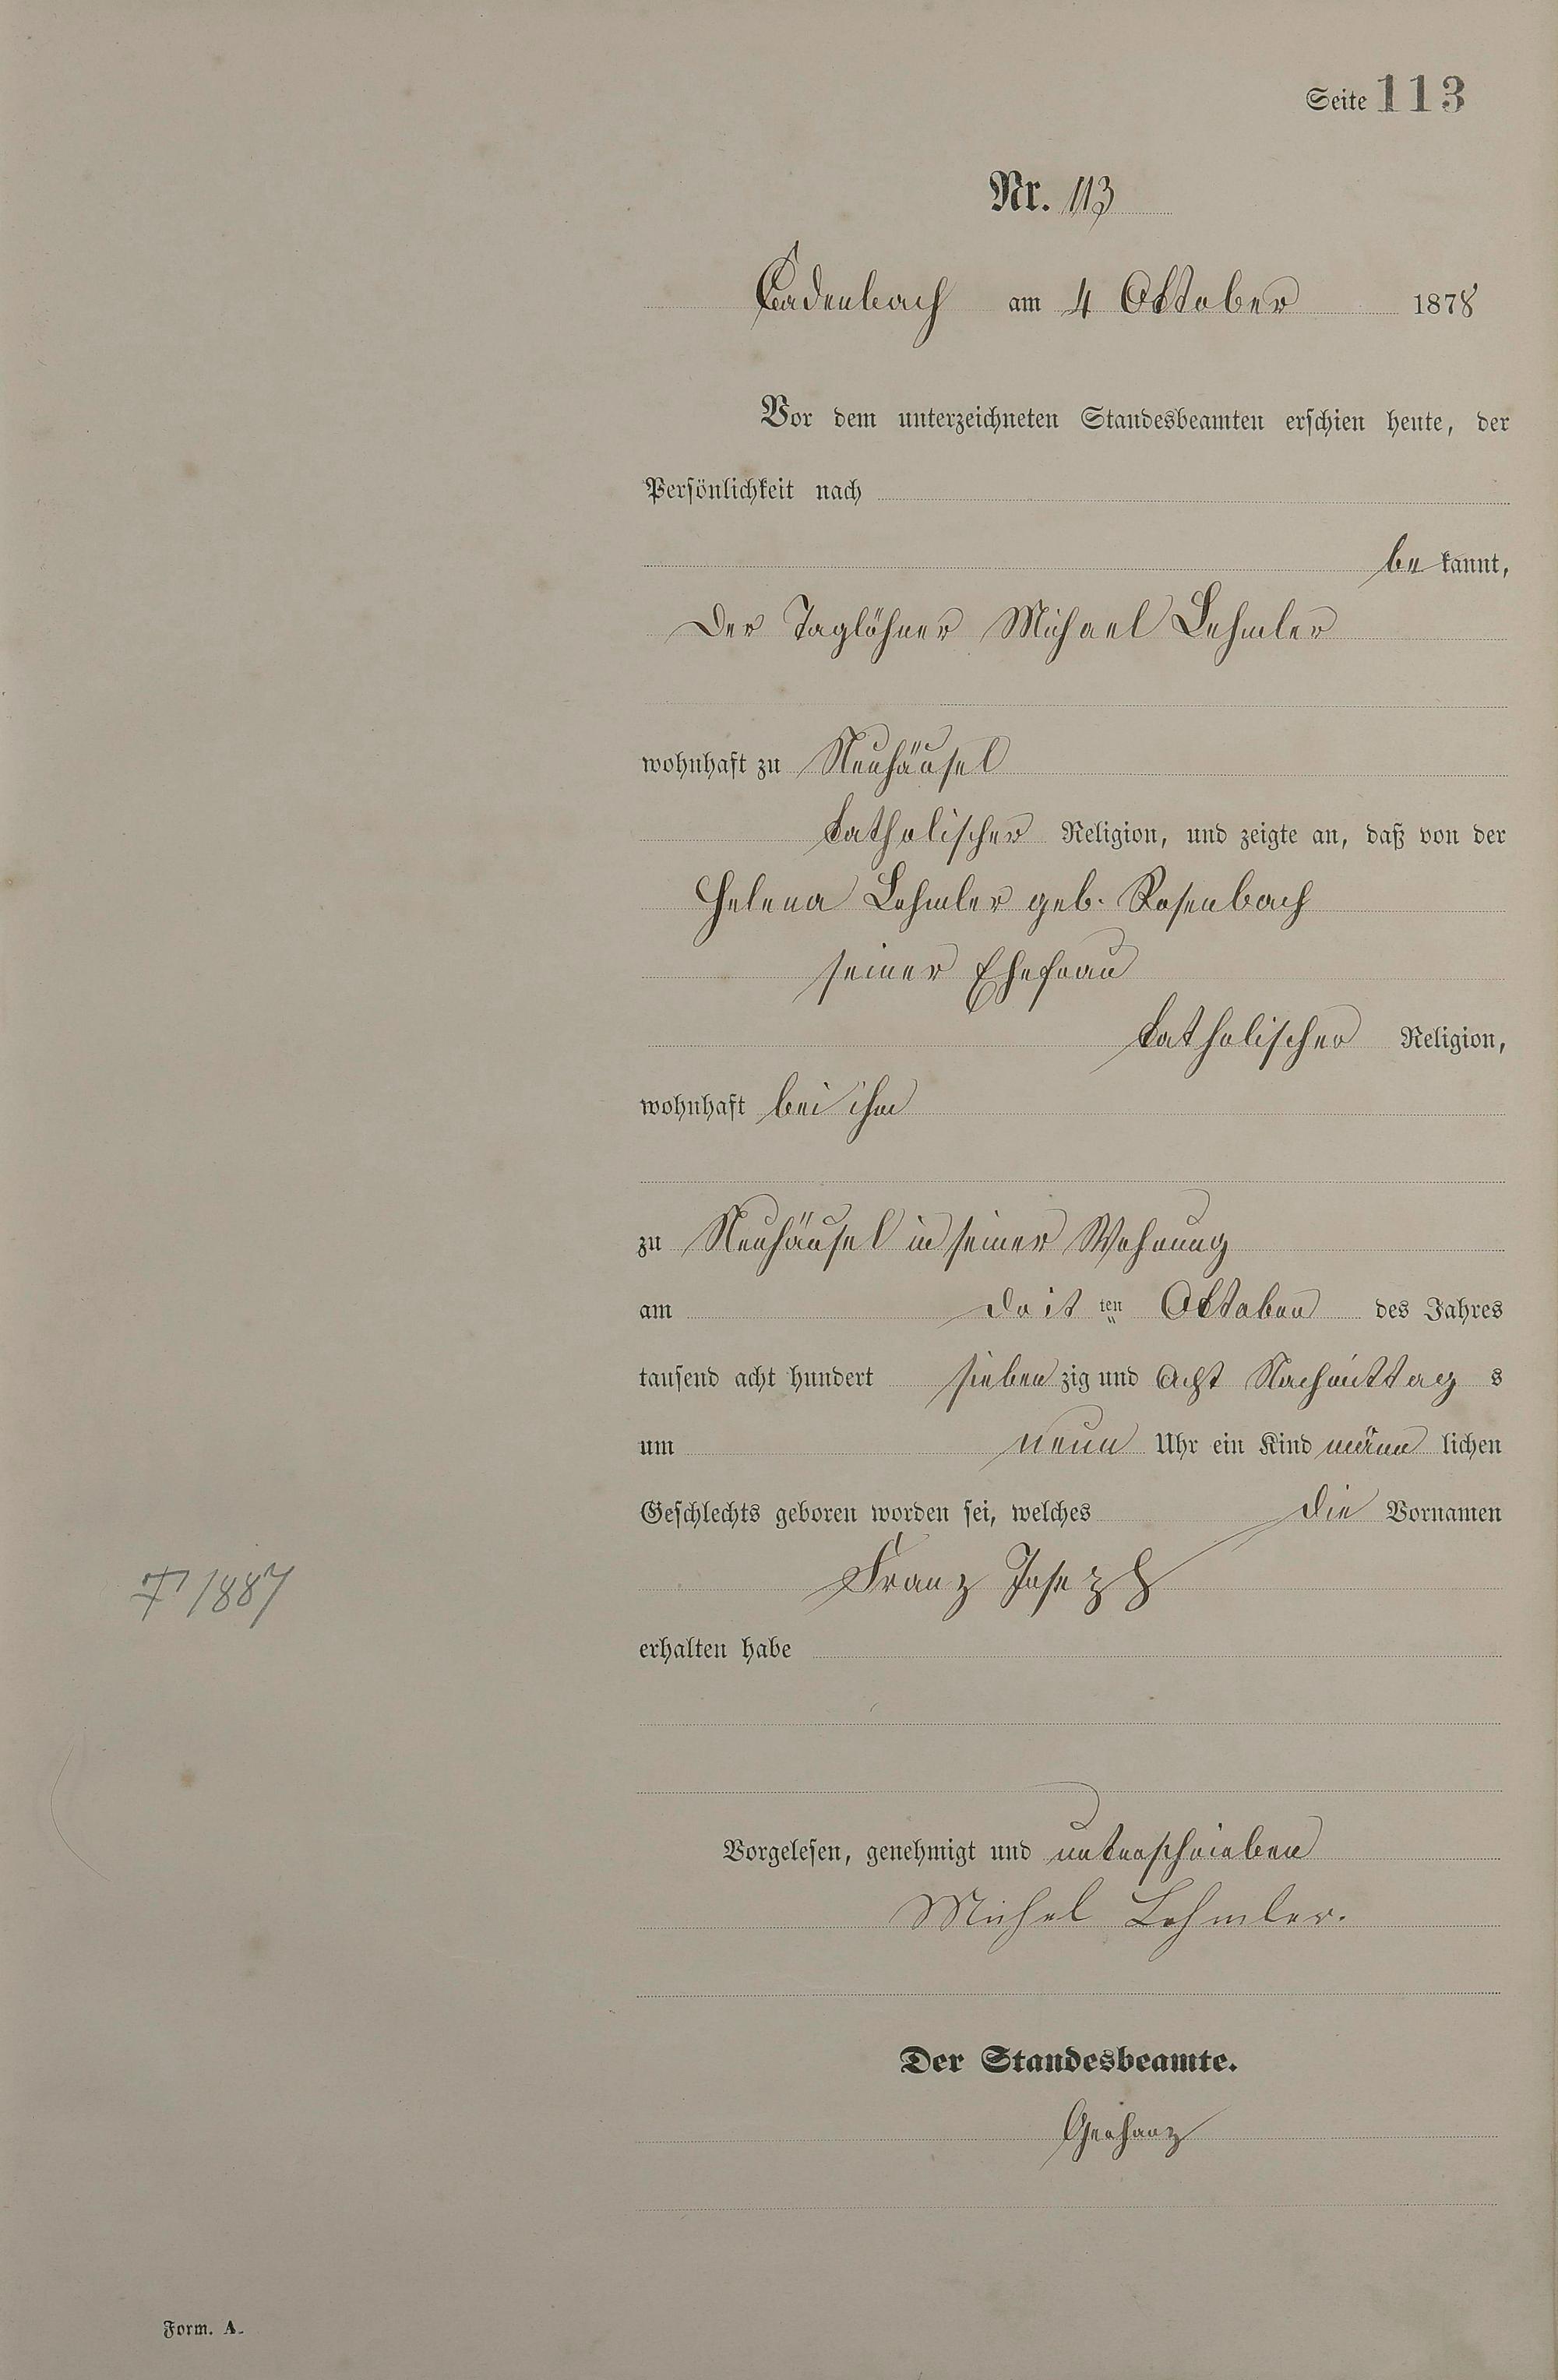 Seite 113
Nr. 113
Cadenbach am 4 Oktober 1878
Vor dem unterzeichneten Standesbeamten erschien heute, der
Persönlichkeit nach
be kannt,
Der Taglöhner Michael Lehmler
wohnhaft zu Neuhäusel
katholischer Religion, und zeigte an, daß von der
Helena Lehmler geb. Rosenbach
seiner Ehefrau
katholischer Religion,
wohnhaft bei ihm
zu Neuhäusel in seiner Wohnung
am drit ten Oktober des Jahres
tausend acht hundert sieben zig und acht Nachmittag s
um neun Uhr ein Kind männ lichen
Geschlechts geboren worden sei, welches die Vornamen
Franz Joseph
† 1887
erhalten habe
Vorgelesen, genehmigt und unterschrieben
Michel Lehmler.
Der Standesbeamte.
Gerhanz
Form. A.